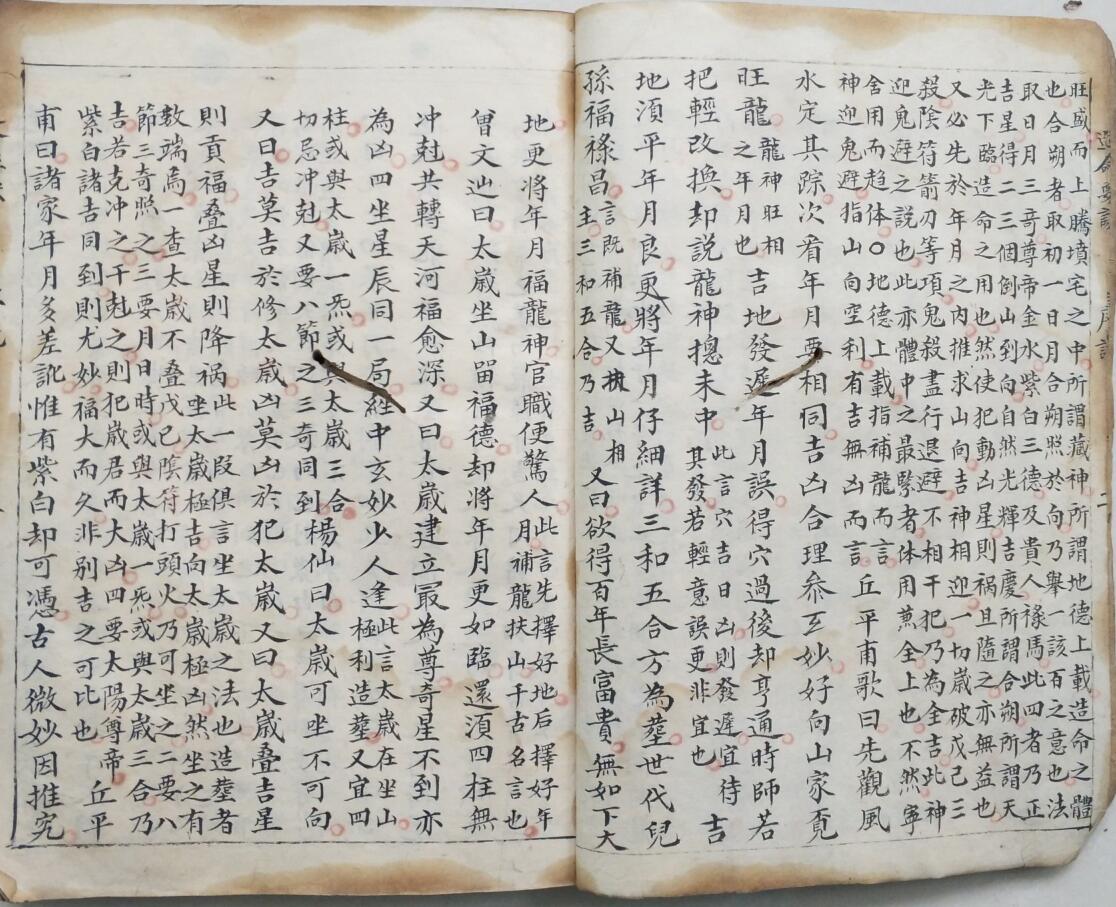 旺盛而上騰墳宅之中所謂藏神所謂地德上載造命之體
也合朔者取初一日月合朔照於向乃舉一該百之意也法
取日月三奇尊帝金水紫白三德及貴人祿馬此四者乃正
吉星得二三個倒山到向自然光輝吉慶所謂合朔所謂天
光下臨造命之用也然使犯動凶星則禍且隨之亦無益也
又必先於年月之內推求山向吉神相迎一切歲破戊己三
殺陰符箭刃等項鬼殺盡行退避不相干犯乃為全吉此神
迎鬼避之說也此亦體中之最緊者体用蒐全上也不然寧
舍用而趋体○地德上載指補龍而言
神迎鬼避指山向空利有吉無凶而言
丘平甫歌曰先觀風
水定其踪次看年月要相同吉凶合理參玄妙好向山家覔
旺龍
龍神旺相
之年月也
吉地發遲年月誤得穴過後却亨通時師若
把輕改換却說龍神揔未中
此言穴吉日凶則發遲宜待
其發若輕意誤更非宜也
吉
地須平年月良更將年月仔細詳三和五合方為塟世代兒
孫福祿昌
言既補龍又扶山相
主三和五合乃吉
又曰欲得百年長富貴無如下大
地更將年月福龍神官職便驚人
此言先擇好地后擇好年
月補龍扶山千古名言也
曾文辿曰太歲坐山畱福德却將年月更如臨還須四柱無
冲尅共轉天河福愈深又曰太歲建立最為尊奇星不到亦
為凶四坐星辰同一局經中玄妙少人逢
此言太歲在坐山
極利造塟又宜四
柱或與太歲一炁或與太歲三合
切忌冲尅又要八節之三奇同到
楊仙曰太歲可坐不可向
又曰吉莫吉於修太歲凶莫凶於犯太歲又曰太歲叠吉星
則貢福叠凶星則降禍
此一段俱言坐太歲之法也造塟者
坐太歲極吉向太歲極凶然坐之有
數端焉一查太歲不叠戊己陰符打頭火乃可坐之二要八
節三奇照之三要月日時或與太歲一炁或與太歲三合乃
吉若克冲之干尅之則犯歲君而大凶四要太陽尊帝
紫白諸吉同到則尤妙福大而久非别吉之可比也
丘平
甫曰諸家年月多差訛惟有紫白却可憑古人微妙因推究